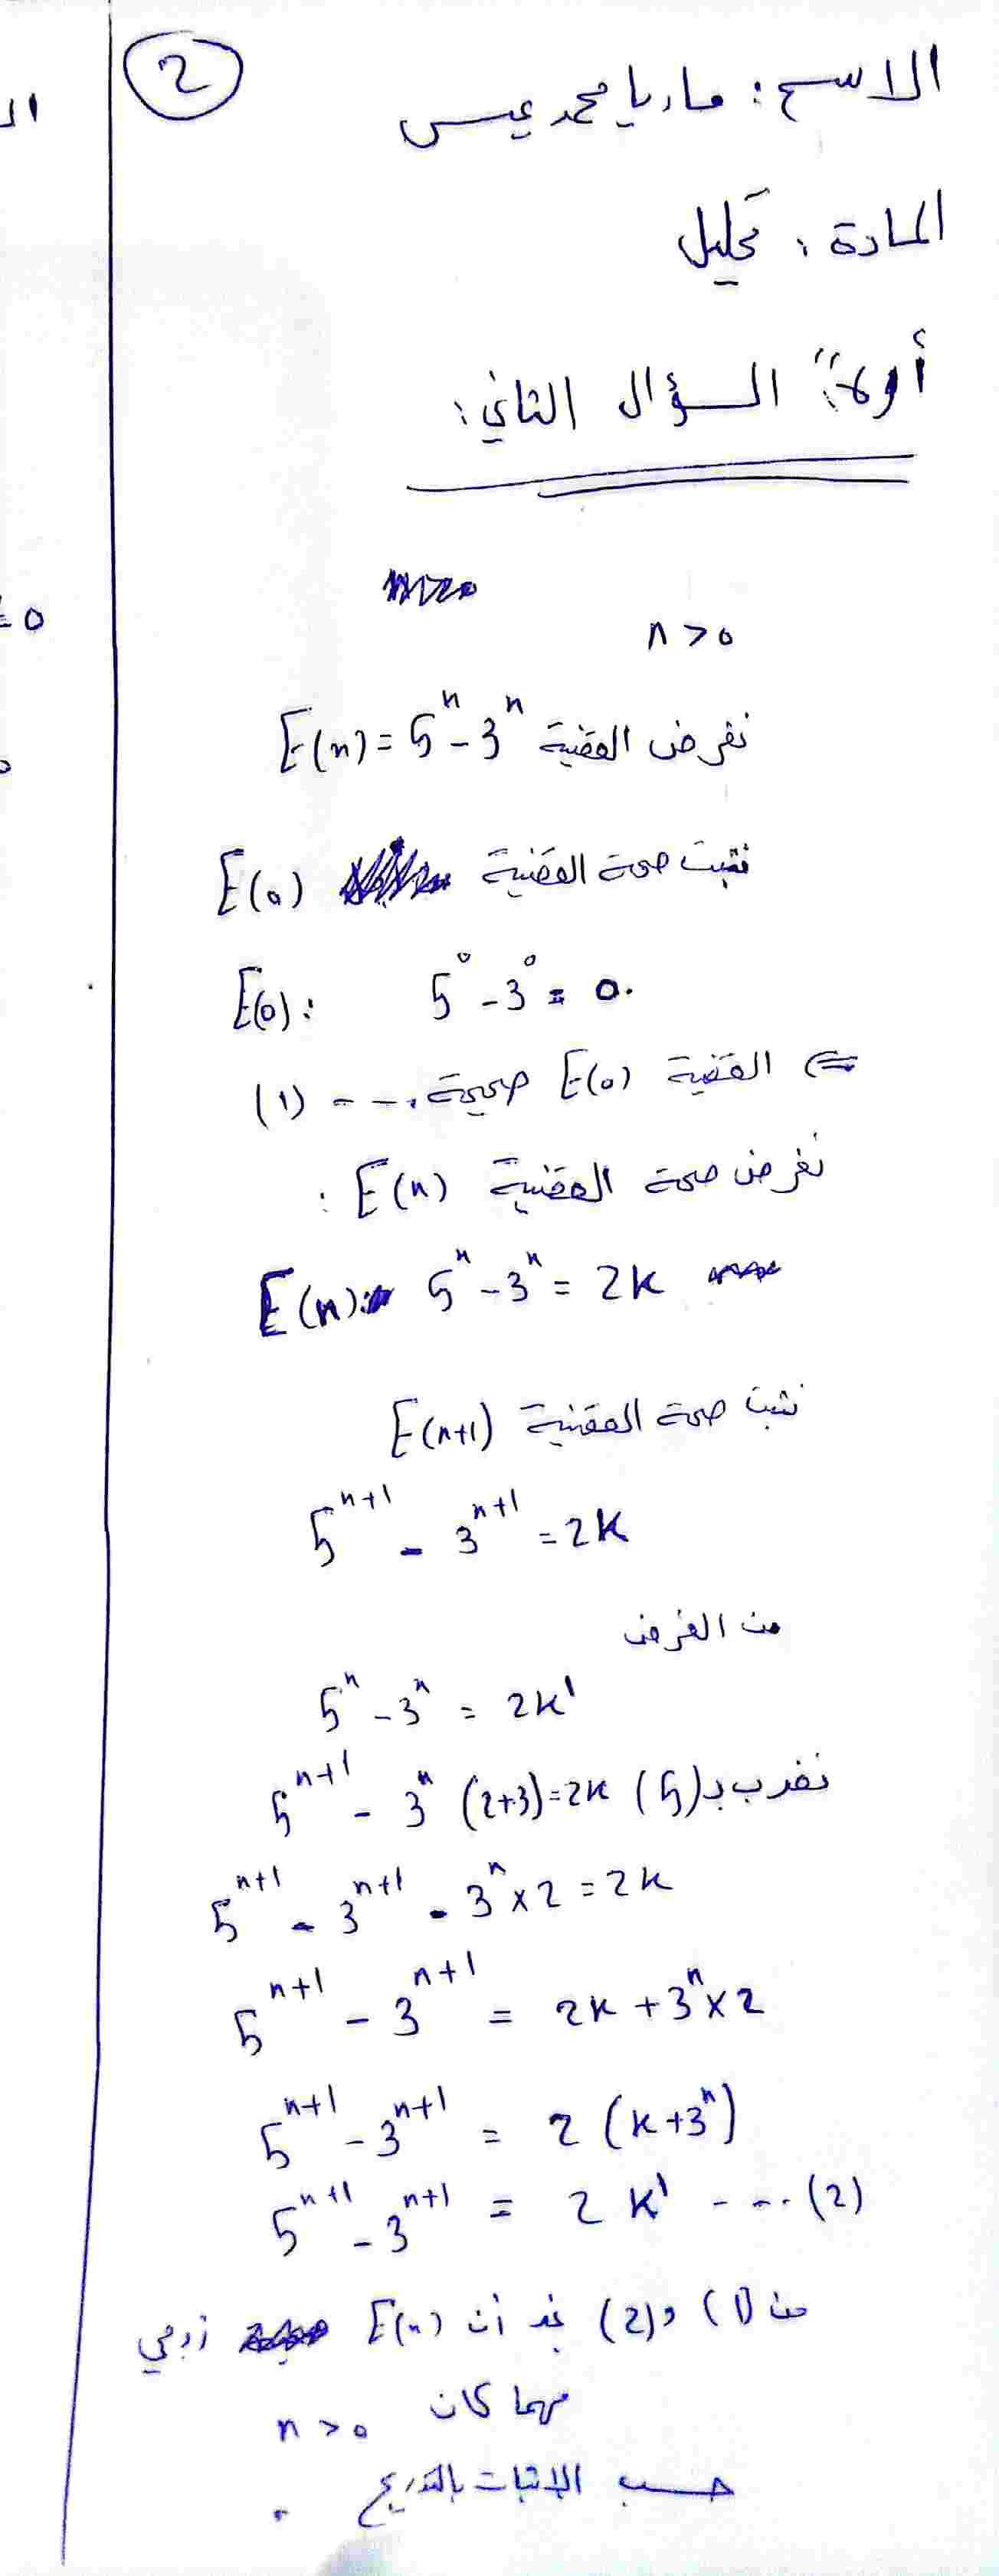 2
الاسم : ماريا محمد عيسى
المادة : تحليل
أولاً : السؤال الثاني :
n > 0
نفرض القضية E(n) = 5^n - 3^n
نثبت صحة القضية E(0)
E(0) : 5^0 - 3^0 = 0.
⇐ القضية E(0) صحيحة . - - (1)
نفرض صحة القضية E(n) :
E(n): 5^n - 3^n = 2k
نثبت صحة القضية E(n+1)
5^{n+1} - 3^{n+1} = 2k
من الفرض
5^n - 3^n = 2k'
نضرب بـ (5) 5^{n+1} - 3^n (2+3) = 2k
5^{n+1} - 3^{n+1} - 3^n × 2 = 2k
5^{n+1} - 3^{n+1} = 2k + 3^n × 2
5^{n+1} - 3^{n+1} = 2 (k + 3^n)
5^{n+1} - 3^{n+1} = 2 k' - - . . (2)
من (1) و (2) نجد أن E(n) زوجي
مهما كان n > 0
حسب الاثبات بالتدريج .